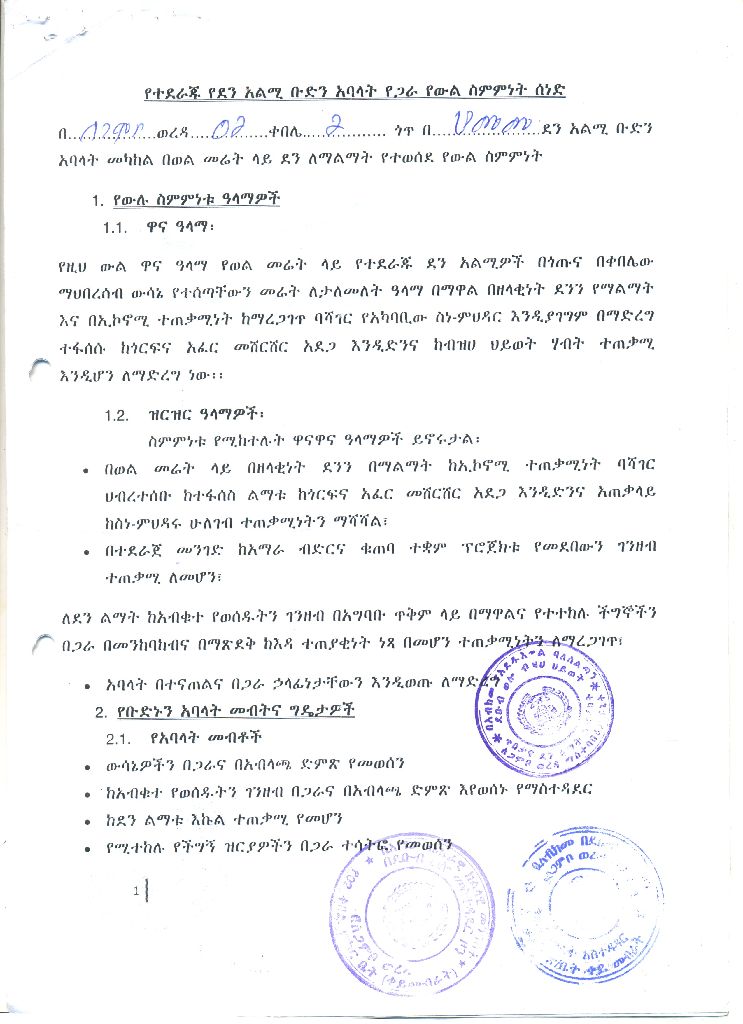 የተደራጁ የደን አልሚ ቡድን አባላት የጋራ የውል ስምምነት ሰነድ
በ...ለጋምቦ...ወረዳ....06.....ቀበሌ.....2......... ጎጥ በ....ሀሙሙ...ደን አልሚ ቡድን
አባላት መካከል በወል መሬት ላይ ደን ለማልማት የተወሰደ የውል ስምምነት
1. የውሉ ስምምነቱ ዓላማዎች
1.1. ዋና ዓላማ፡
የዚህ ውል ዋና ዓላማ የወል መሬት ላይ የተደራጁ ደን አልሚዎች በጎጡና በቀበሌው
ማህበረሰብ ውሳኔ የተሰጣቸውን መሬት ለታለመለት ዓላማ በማዋል በዘላቂነት ደንን የማልማት
እና በኢኮኖሚ ተጠቃሚነት ከማረጋገጥ ባሻገር የአካባቢው ስነ-ምህዳር እንዲያገግም በማድረግ
ተፋሰሱ ከጎርፍና አፈር መሸርሸር አደጋ እንዲድንና ከብዝሀ ህይወት ሃብት ተጠቃሚ
እንዲሆን ለማድረግ ነው፡፡
1.2. ዝርዝር ዓላማዎች፡
ስምምነቱ የሚከተሉት ዋናዋና ዓላማዎች ይኖሩታል፡
• በወል መሬት ላይ በዘላቂነት ደንን በማልማት ከኢኮኖሚ ተጠቃሚነት ባሻገር
ህብረተሰቡ ከተፋሰስ ልማቱ ከጎርፍና አፈር መሸርሸር አደጋ እንዲድንና አጠቃላይ
ከስነ-ምህዳሩ ሁለገብ ተጠቃሚነትን ማሻሻል፤
• በተደራጀ መንገድ ከአማራ ብድርና ቁጠባ ተቋም ፕሮጀክቱ የመደበውን ገንዘብ
ተጠቃሚ ለመሆን፤
ለደን ልማት ከአብቁተ የወሰዱትን ገንዘብ በአግባቡ ጥቅም ላይ በማዋልና የተተከሉ ችግኞችን
በጋራ በመንከባከብና በማጽደቅ ከእዳ ተጠያቂነት ነጻ በመሆን ተጠቃሚነትን ለማረጋገጥ፤
• አባላት በተናጠልና በጋራ ኃላፊነታቸውን እንዲወጡ ለማድረግ
2. የቡድኑን አባላት መብትና ግዴታዎች
2.1. የአባላት መብቶች
• ውሳኔዎችን በጋራና በአብላጫ ድምጽ የመወሰን
• ከአብቁተ የወሰዱትን ገንዘብ በጋራና በአብላጫ ድምጽ እየወሰኑ የማስተዳደር
• ከደን ልማቱ እኩል ተጠቃሚ የመሆን
• የሚተከሉ የችግኝ ዝርያዎችን በጋራ ተሳትፎ የመወሰን
1